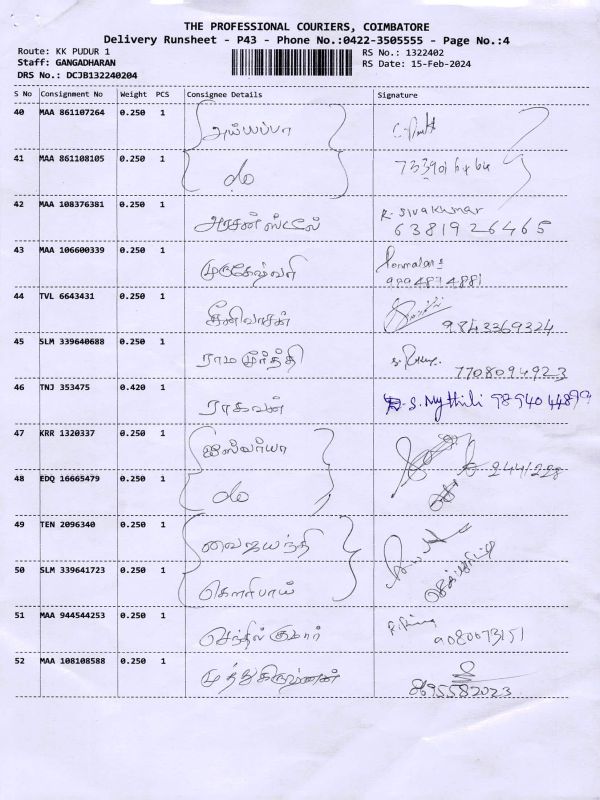 THE PROFESSIONAL COURIERS, COIMBATORE
Delivery Runsheet - P43 - Phone No.:0422-3505555 - Page No.:4
Route: KK PUDUR 1 RS No.: 1322402
Staff: GANGADHARAN RS Date: 15-Feb-2024
DRS No.: DCJB132240204
S No Consignment No Weight PCS Consignee Details Signature
40 MAA 861107264 0.250 1 அய்யப்பா
41 MAA 861108105 0.250 1 do
42 MAA 108376381 0.250 1 அரசன் ஸ்டீல் R. Sivakumar
6381926465
43 MAA 106600339 0.250 1 முருகேஷ்வரி
9894874881
44 TVL 6643431 0.250 1 சீனிவாசன் 9843369324
45 SLM 339640688 0.250 1 ராமமூர்த்தி 7708094923
46 TNJ 353475 0.420 1 ராகவன் S. Mythili 9894044899
47 KRR 1320337 0.250 1 ஐஸ்வர்யா 2441228
48 EDQ 16665479 0.250 1 do
49 TEN 2096340 0.250 1 வைஜயந்தி
50 SLM 339641723 0.250 1 கௌரிபாய்
51 MAA 944544253 0.250 1 செந்தில் குமார் 9080073151
52 MAA 108108588 0.250 1 முத்துகிருஷ்ணன் 8695582023